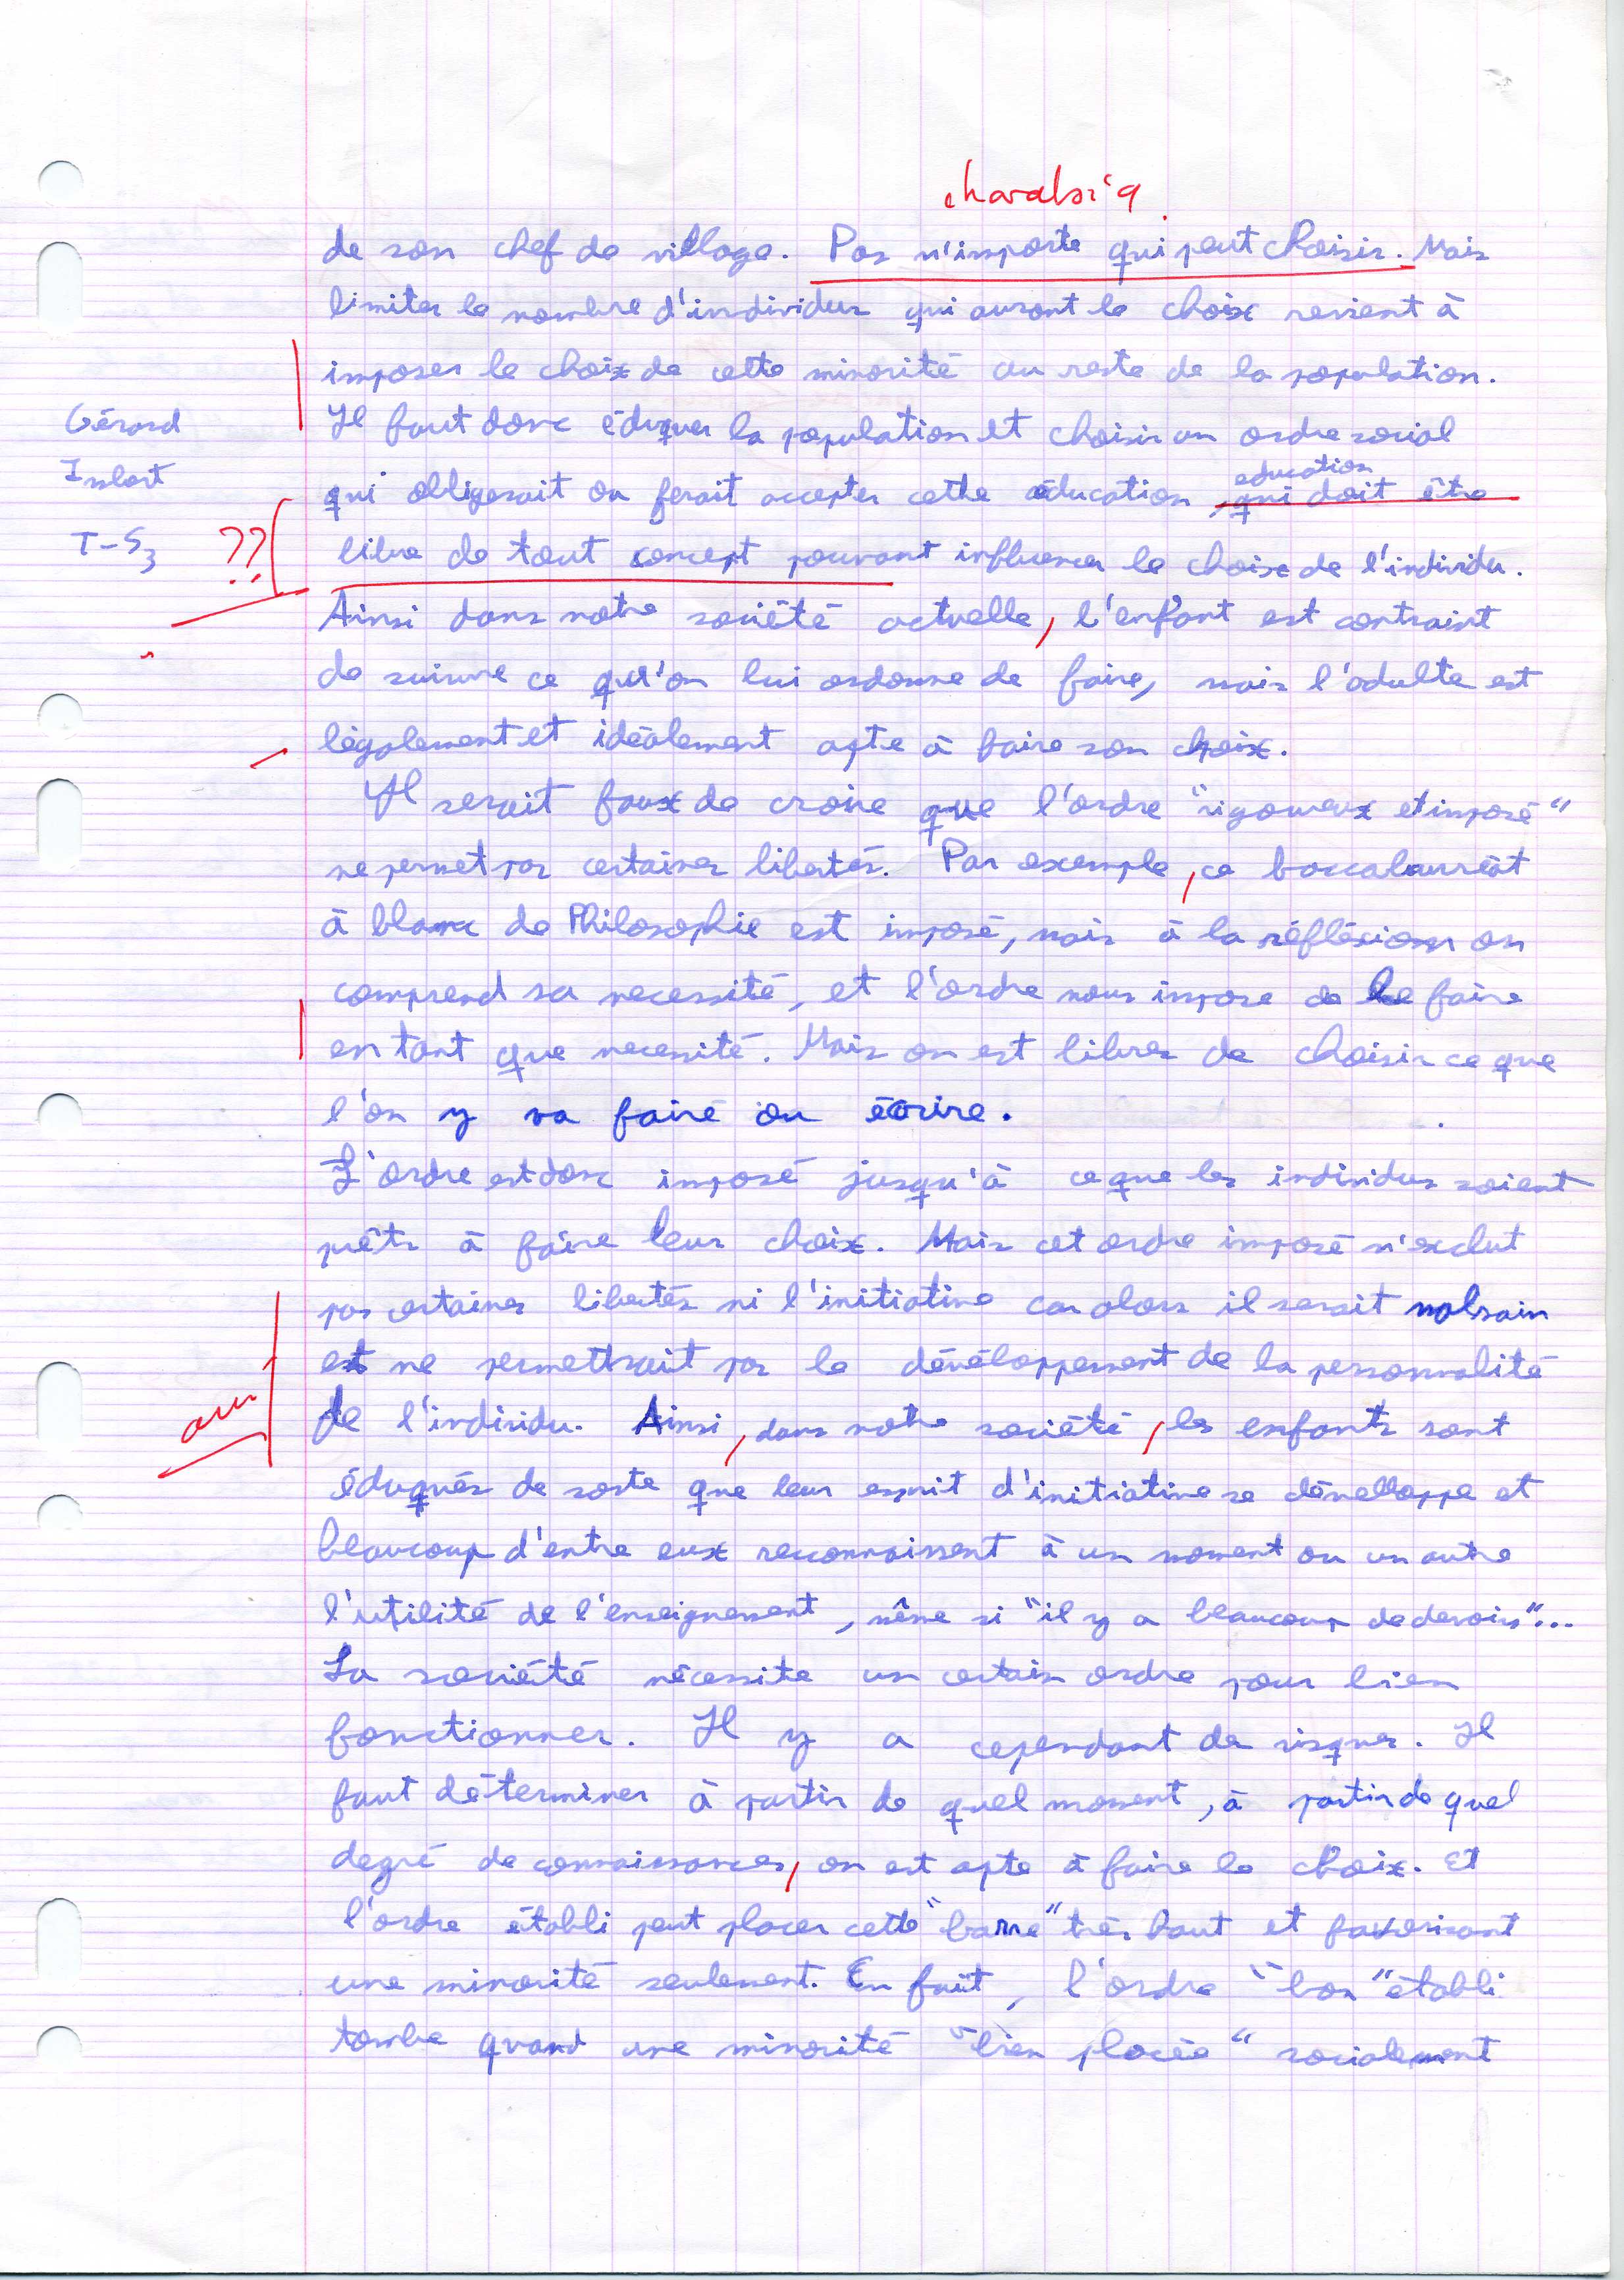 de son chef de village. Pas n'importe qui peut choisir. Mais
limiter le nombre d'individus qui auront le choix revient à
imposer le choix de cette minorité au reste de la population.
Gérard
Imbert
T-S3
Il faut donc éduquer la population et choisir un ordre social
education
qui obligerait ou ferait accepter cette éducation, qui doit être
??
libre de tout concept pouvant influencer le choix de l'individu.
Ainsi dans notre société actuelle, l'enfant est contraint
de suivre ce qu'on lui ordonne de faire, mais l'adulte est
légalement et idéalement apte à faire son choix.
Il serait faux de croire que l'ordre "rigoureux et imposé"
ne permet pas certaines libertés. Par exemple, ce baccalauréat
à blanc de Philosophie est imposé, mais à la réfléxion on
comprend sa necessité, et l'ordre nous impose de le faire
en tant que necessité. Mais on est libres de choisir ce que
l'on y va faire ou écrire.
L'ordre est donc imposé jusqu'à ce que les individus soient
prêts à faire leur choix. Mais cet ordre imposé n'exclut
pas certaines libertés ni l'initiative car alors il serait malsain
et ne permettrait pas le dévéloppement de la personnalité
de l'individu. Ainsi, dans notre société, les enfants sont
éduqués de sorte que leur esprit d'initiative se dévelloppe et
beaucoup d'entre eux reconnaissent à un moment ou un autre
l'utilité de l'enseignement, même si "il y a beaucoup de devoirs"...
La société nécessite un certain ordre pour bien
fonctionner. Il y a cependant de risques. Il
faut déterminer à partir de quel moment, à partir de quel
degré de connaissances, on est apte à faire le choix. Et
l'ordre établi peut placer cette "barre" très haut et favorisant
une minorité seulement. En fait, l'ordre "bon" établi
tombe quand une minorité "bien placée" socialement